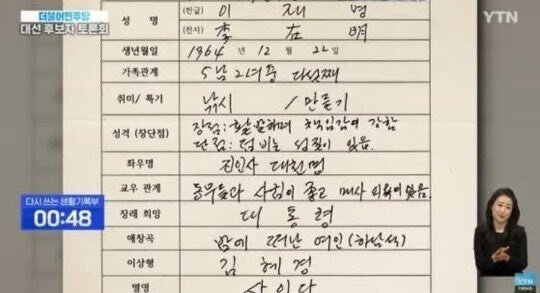 더불어민주당
대선 후보자 토론회
YTN
성 명
(한글) 이 재 명
(한자) 李 在 明
생년월일 1964 년 12 월 22 일
가족관계 5남 2녀중 다섯째
취미/ 특기 낚시 / 만들기
성격 (장단점) 장점: 활발하며 책임감이 강함
단점: 덤비는 성질이 있음.
좌우명 진인사 대천명
교우 관계 동무들과 사귐이 좋고 매사 의욕이 있음.
장래 희망 대통령
애창곡 밤에 떠난 여인 (하남석)
이상형 김 혜 경
별명 사이다
다시 쓰는 생활기록부
00:48
YTN